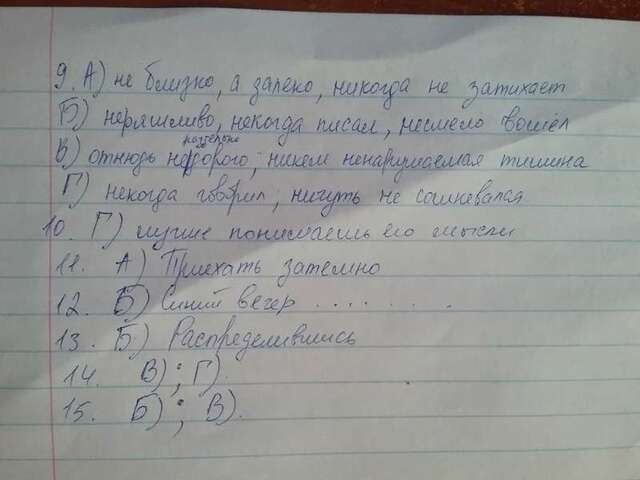 9. А) не близко, а далеко, никогда не затихает
Б) неряшливо, некогда писал, несмело вошёл
раздельно
В) отнюдь недорого; никем ненарушаемая тишина
Г) некогда говорил, ничуть не сомневался
10. Г) лучше понимаешь его мысли
11. А) Приехать затемно
12. Б) Синий вечер . . . . . . . .
13. Б) Распределившись
14. В); Г).
15. Б); В).